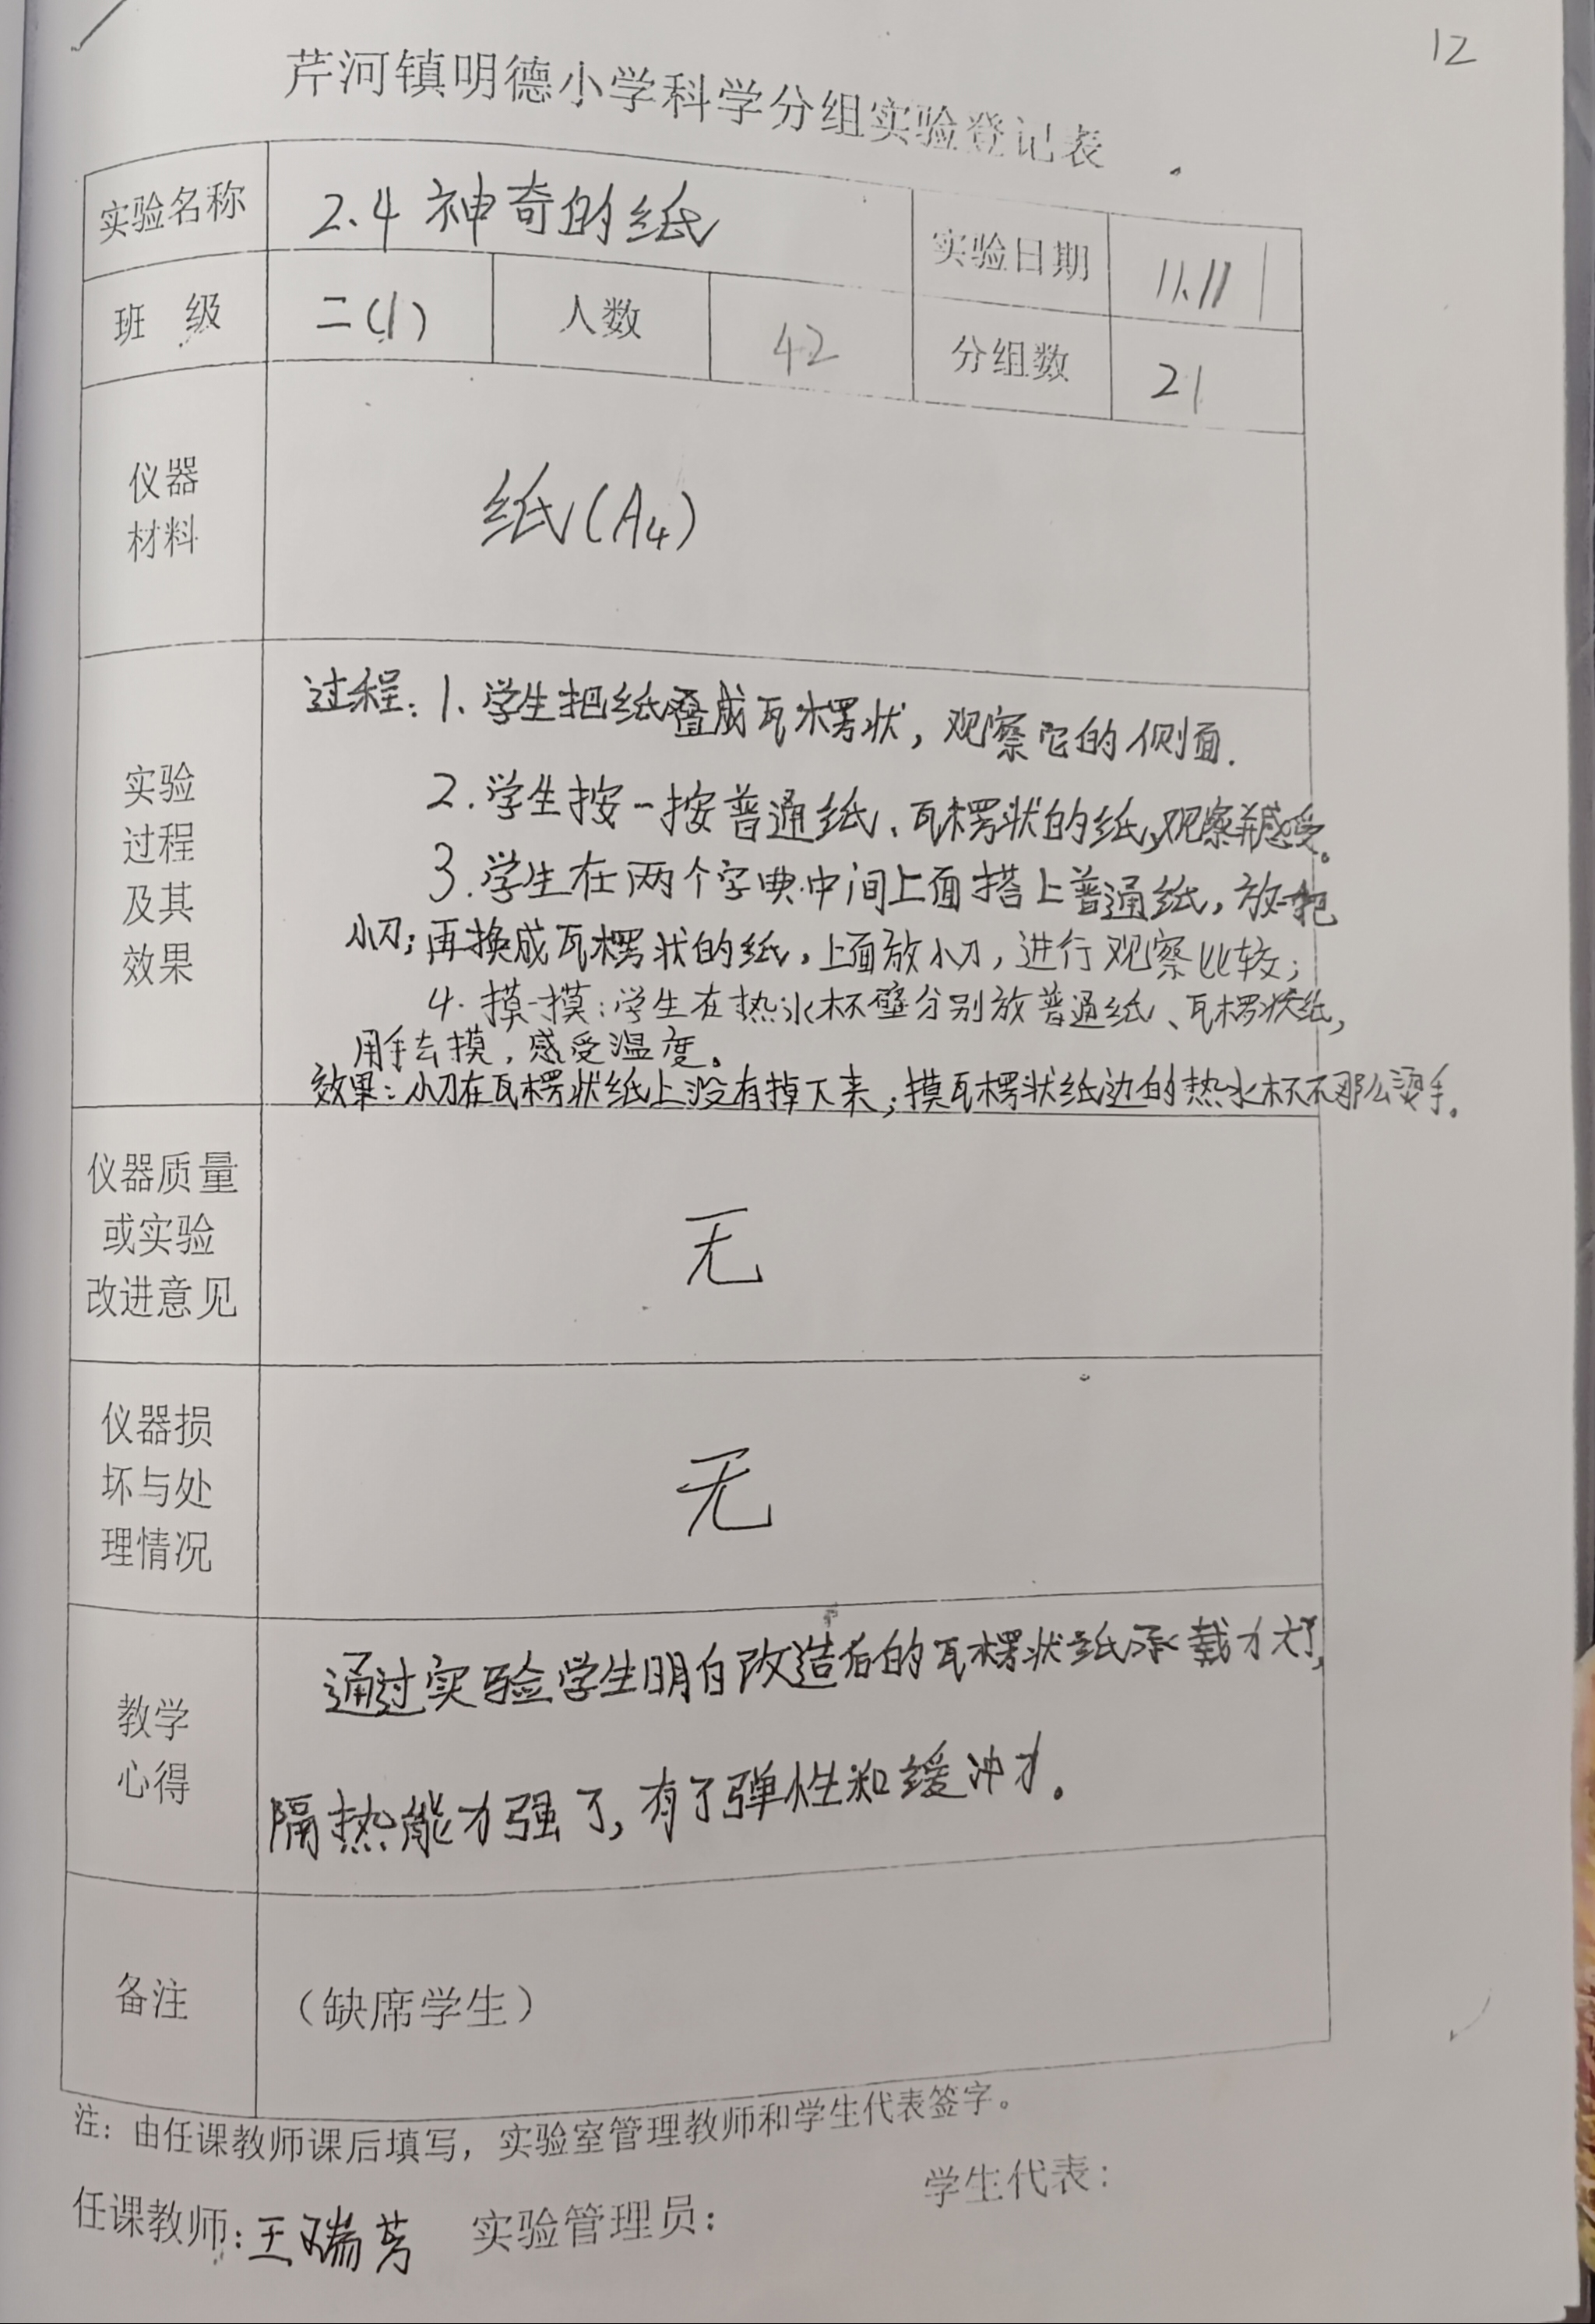 12
芹河镇明德小学科学分组实验登记表
实验名称 2.4 神奇的纸 实验日期 11.11
班 级 二(1) 人数 42 分组数 21
仪器
材料
纸(A4)
实验
过程
及其
效果
过程: 1. 学生把纸叠成瓦楞状, 观察它的侧面.
2. 学生按一按普通纸、瓦楞状的纸,观察并感受。
3. 学生在两个字典中间上面搭上普通纸, 放一把
小刀; 再换成瓦楞状的纸, 上面放小刀, 进行观察比较;
4. 摸一摸: 学生在热水杯壁分别放普通纸、瓦楞状纸,
用手去摸, 感受温度。
效果: 小刀在瓦楞状纸上没有掉下来; 摸瓦楞状纸边的热水杯不那么烫手.
仪器质量
或实验
改进意见
无
仪器损
坏与处
理情况
无
教学
心得
通过实验学生明白改造后的瓦楞状纸承载力大了,
隔热能力强了, 有了弹性和缓冲力。
备注 (缺席学生)
注: 由任课教师课后填写, 实验室管理教师和学生代表签字。
任课教师: 王瑞芳 实验管理员: 学生代表: